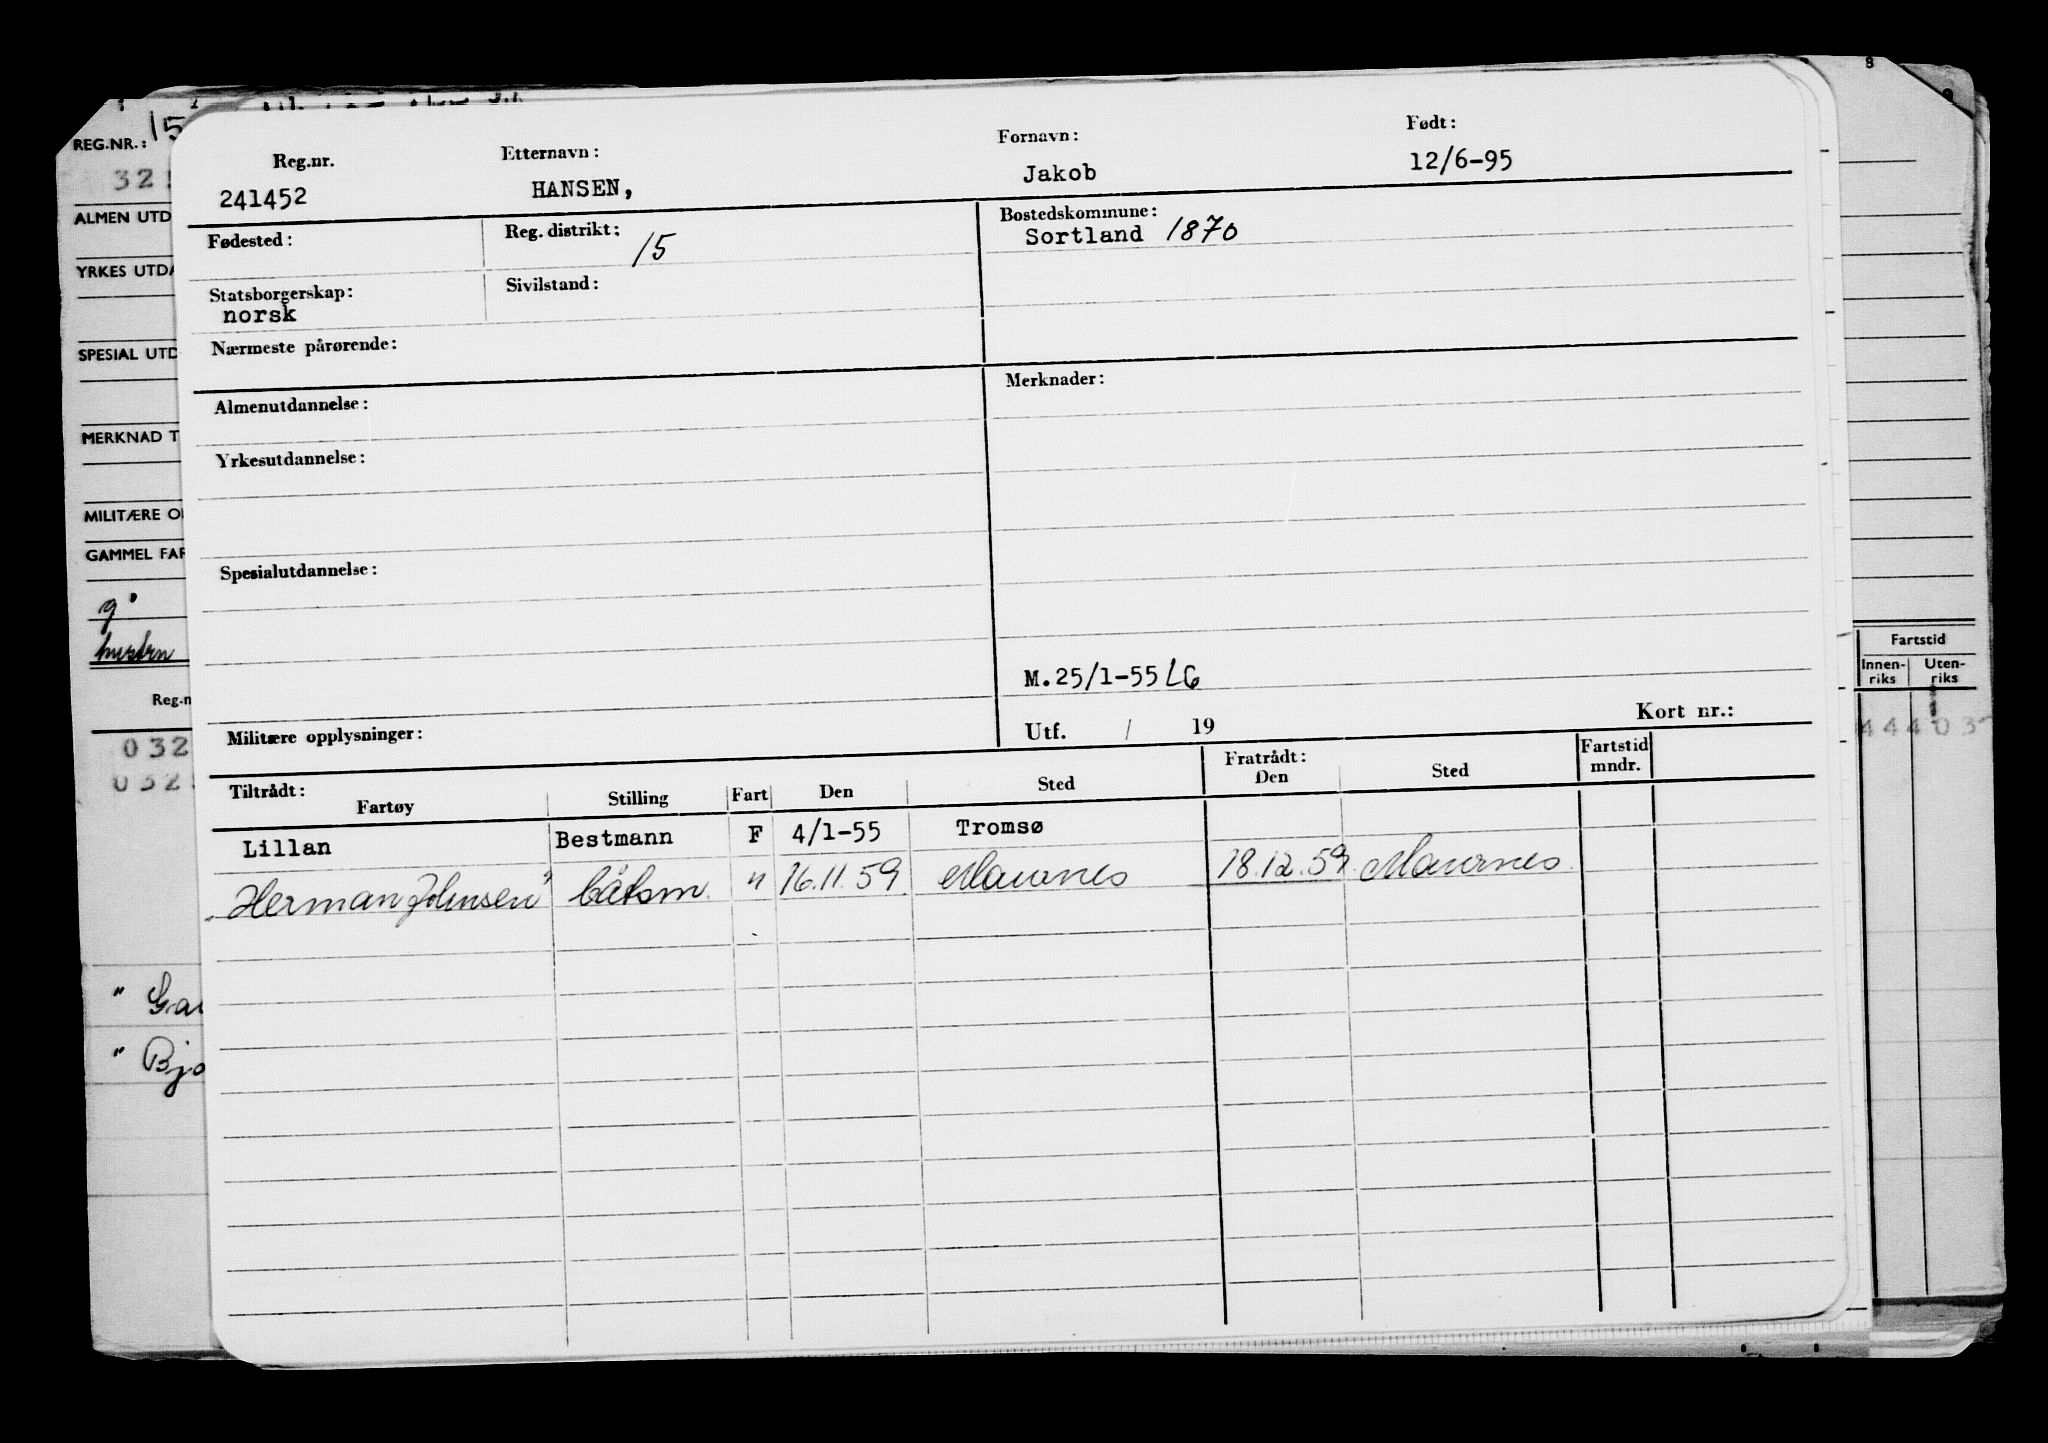 REG.NR.: 15
325
ALMEN UTD
YRKES UTDA
SPESIAL UTD
MERKNAD T
MILITÆRE O
GAMMEL FAR
Reg.n
032
032
" Ga
" Bjo
Reg.nr. Etternavn: Fornavn: Født:
241452 HANSEN, Jakob 12/6-95
Fødested: Reg. distrikt: 15 Bostedskommune:
Sortland 1870
Statsborgerskap: Sivilstand:
norsk
Nærmeste pårørende:
Almenutdannelse: Merknader:
Yrkesutdannelse:
Spesialutdannelse:
M.25/1-55 LG
Militære opplysninger: Utf. / 19 Kort nr.:
Tiltrådt: Fratrådt: Fartstid
Fartøy Stilling Fart Den Sted Den Sted mndr.
Lillan Bestmann F 4/1-55 Tromsø
"Herman Johnsen" båtsm. " 16.11.59 Maurnes 18.12.59. Maurnes
8
Fartstid
Innen-riks Uten-riks